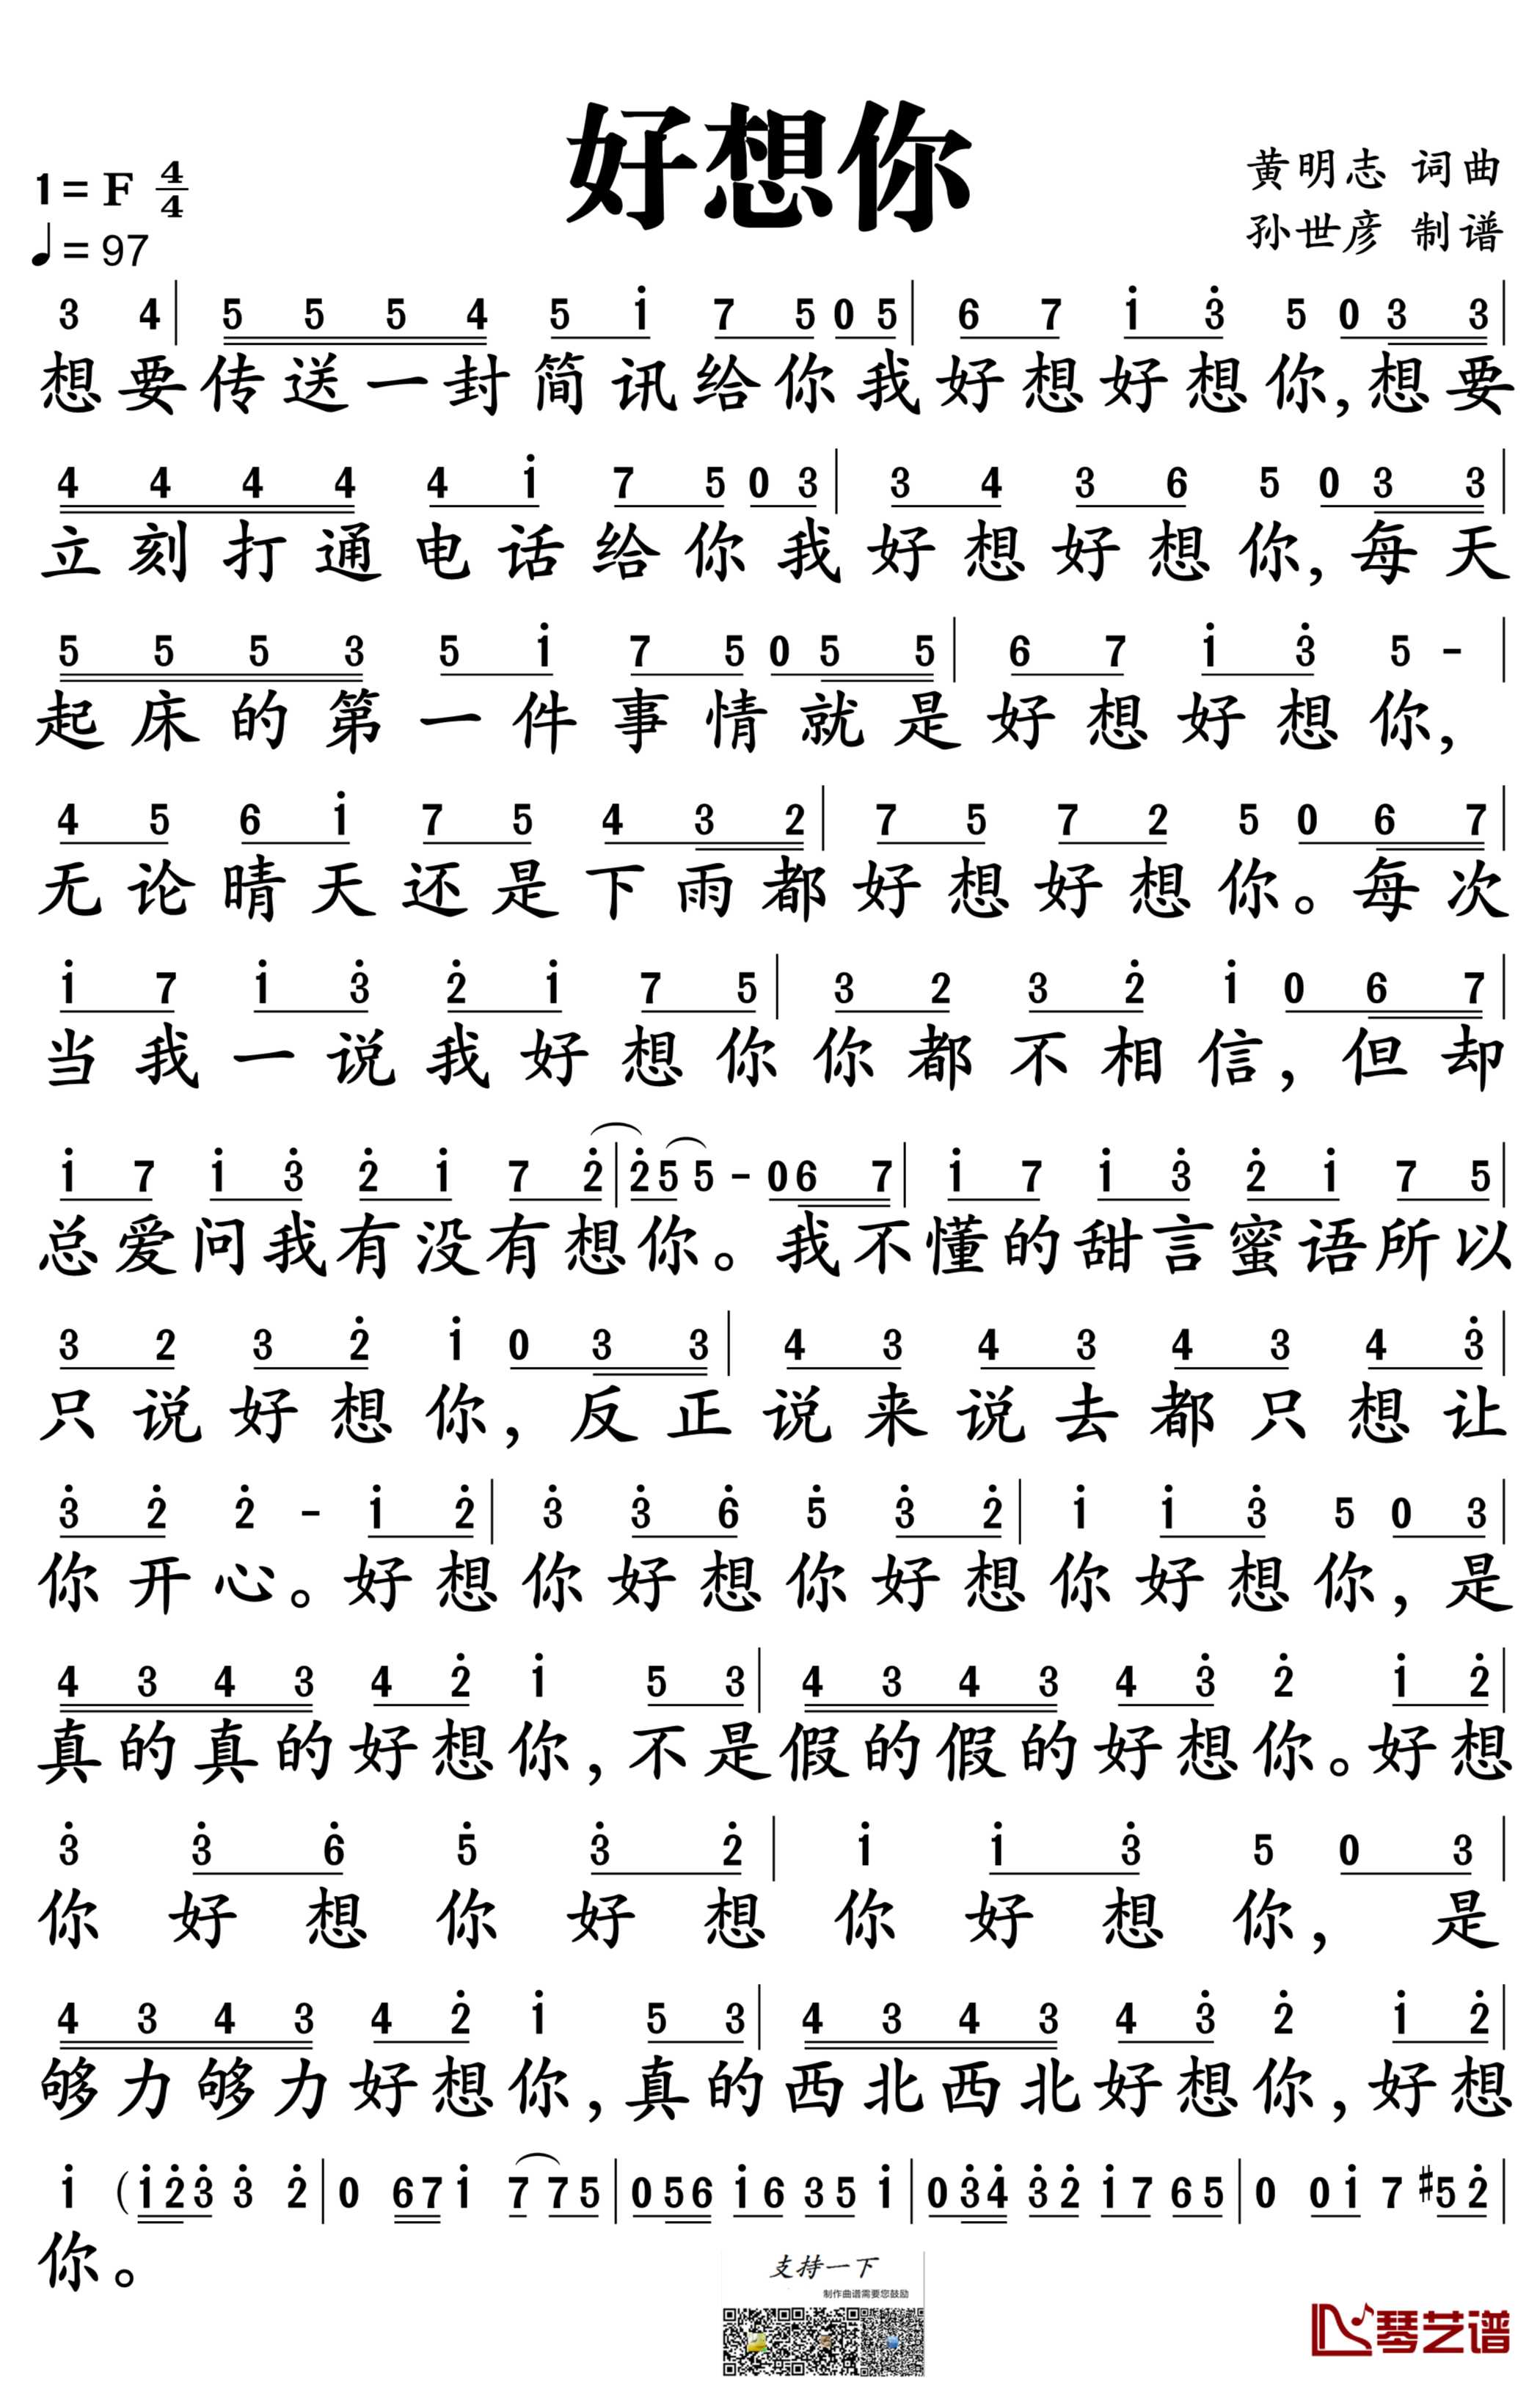 好想你
1= F 4/4
♩= 97
黄明志 词曲
孙世彦 制谱
3 4 | 5 5 5 4 5 i̇ 7 5 0 5 | 6 7 i̇ 3̇ 5 0 3 3 |
想要传送一封简讯给你我好想好想你,想要
4 4 4 4 4 i̇ 7 5 0 3 | 3 4 3 6 5 0 3 3 |
立刻打通电话给你我好想好想你,每天
5 5 5 3 5 i̇ 7 5 0 5 5 | 6 7 i̇ 3̇ 5 - |
起床的第一件事情就是好想好想你,
4 5 6 i̇ 7 5 4 3 2 | 7 5 7 2 5 0 6 7 |
无论晴天还是下雨都好想好想你。每次
i̇ 7 i̇ 3̇ 2̇ i̇ 7 5 | 3 2 3 2̇ i̇ 0 6 7 |
当我一说我好想你你都不相信,但却
i̇ 7 i̇ 3̇ 2̇ i̇ 7 2̇ | 2̇ 5 5 - 0 6 7 | i̇ 7 i̇ 3̇ 2̇ i̇ 7 5 |
总爱问我有没有想你。我不懂的甜言蜜语所以
3 2 3 2̇ i̇ 0 3 3 | 4 3 4 3 4 3 4 3̇ |
只说好想你,反正说来说去都只想让
3̇ 2̇ 2̇ - i̇ 2̇ | 3̇ 3̇ 6̇ 5̇ 3̇ 2̇ | i̇ i̇ 3̇ 5 0 3 |
你开心。好想你好想你好想你好想你,是
4 3 4 3 4 2̇ i̇ 5 3 | 4 3 4 3 4 3̇ 2̇ i̇ 2̇ |
真的真的好想你,不是假的假的好想你。好想
3̇ 3̇ 6̇ 5̇ 3̇ 2̇ | i̇ i̇ 3̇ 5 0 3 |
你好想你好想你好想你,是
4 3 4 3 4 2̇ i̇ 5 3 | 4 3 4 3 4 3̇ 2̇ i̇ 2̇ |
够力够力好想你,真的西北西北好想你,好想
i̇ ( i̇ 2̇ 3̇ 3̇ 2̇ | 0 6 7 i̇ 7 7 5 | 0 5 6 i̇ 6 3 5 i̇ | 0 3̇ 4̇ 3̇ 2̇ i̇ 7 6 5 | 0 0 i̇ 7 #5 2̇ |
你。
支持一下
制作曲谱需要您鼓励
琴艺谱